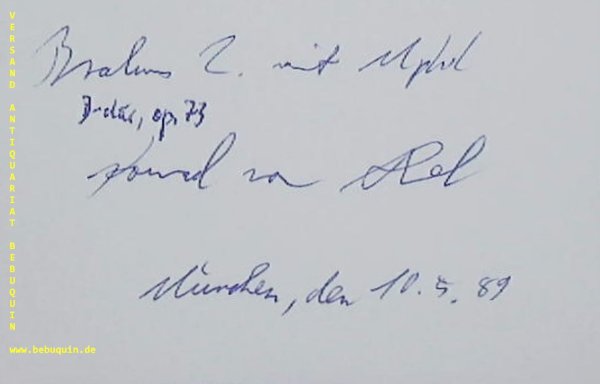 VERSAND ANTIQUARIAT BEBUQUIN
www.bebuquin.de
Brahms 2. mit
D-dur, op. 73
Konrad von
München, den 10.5.89